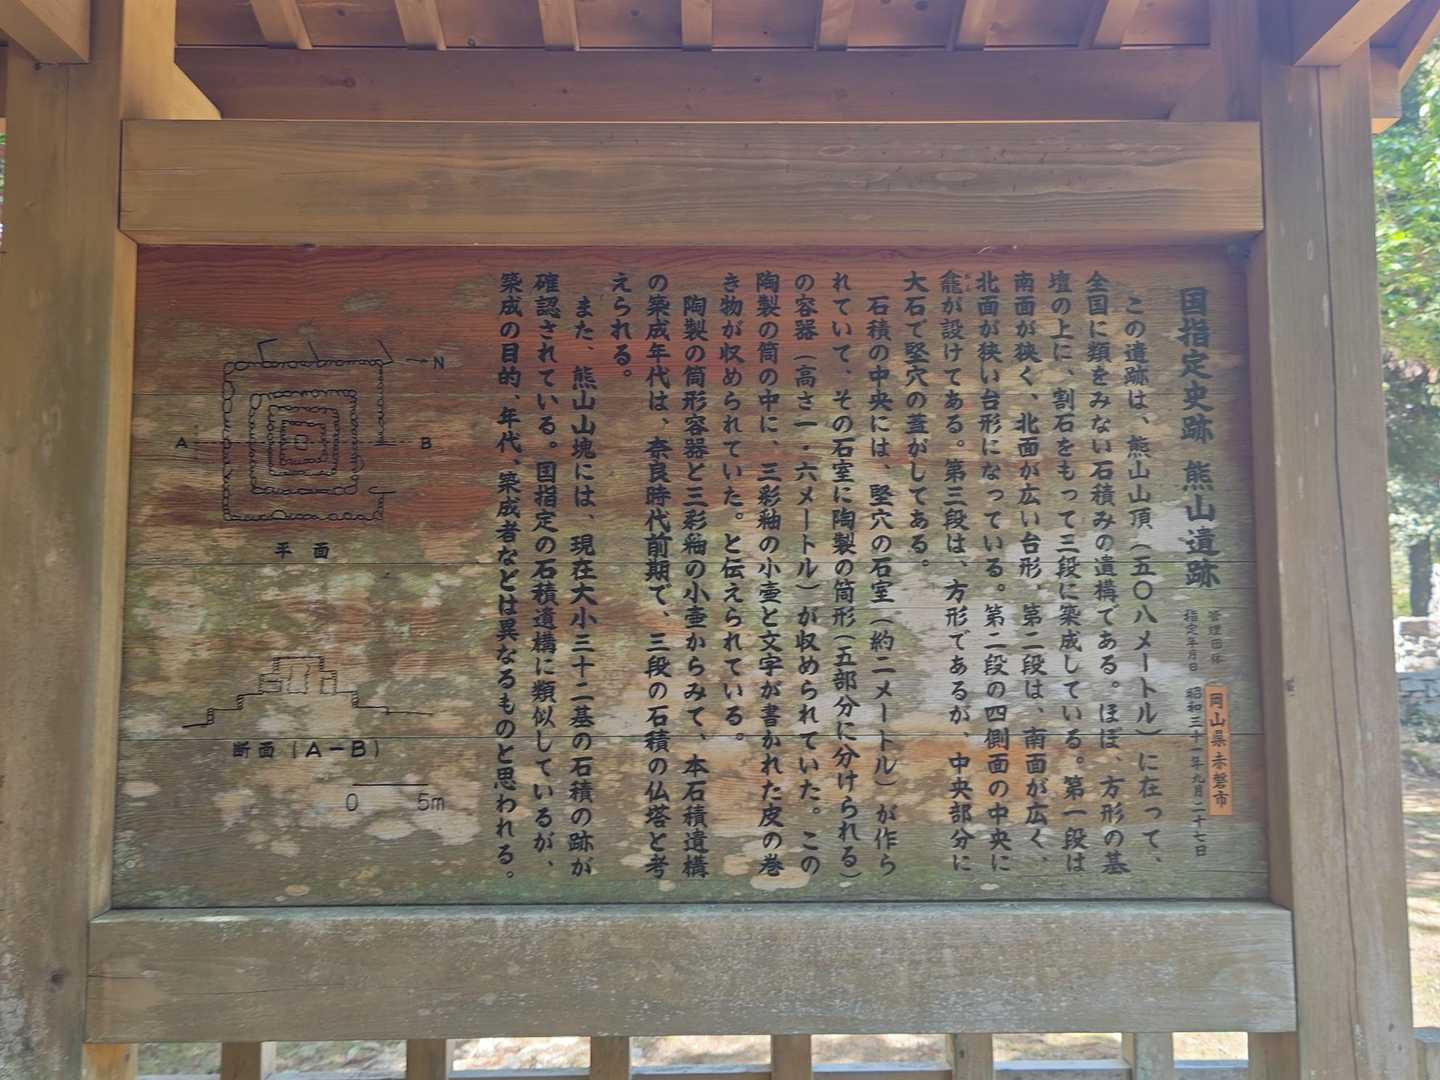 国指定史跡 熊山遺跡
管理団体 岡山県赤磐市
指定年月日 昭和三十一年九月二十七日
この遺跡は、熊山山頂（五〇八メートル）に在って、
全国に類をみない石積みの遺構である。ほぼ、方形の基
壇の上に、割石をもって三段に築成している。第一段は
南面が狭く、北面が広い台形。第二段は、南面が広く、
北面が狭い台形になっている。第二段の四側面の中央に
龕が設けてある。第三段は、方形であるが、中央部分に
大石で竪穴の蓋がしてある。
石積の中央には、竪穴の石室（約二メートル）が作ら
れていて、その石室に陶製の筒形（五部分に分けられる）
の容器（高さ一・六メートル）が収められていた。この
陶製の筒の中に、三彩釉の小壷と文字が書かれた皮の巻
き物が収められていた。と伝えられている。
陶製の筒形容器と三彩釉の小壷からみて、本石積遺構
の築成年代は、奈良時代前期で、三段の石積の仏塔と考
えられる。
また、熊山山塊には、現在大小三十二基の石積の跡が
確認されている。国指定の石積遺構に類似しているが、
築成の目的、年代、築成者などとは異なるものと思われる。
N
A B
平面
断面（A-B）
0 5m